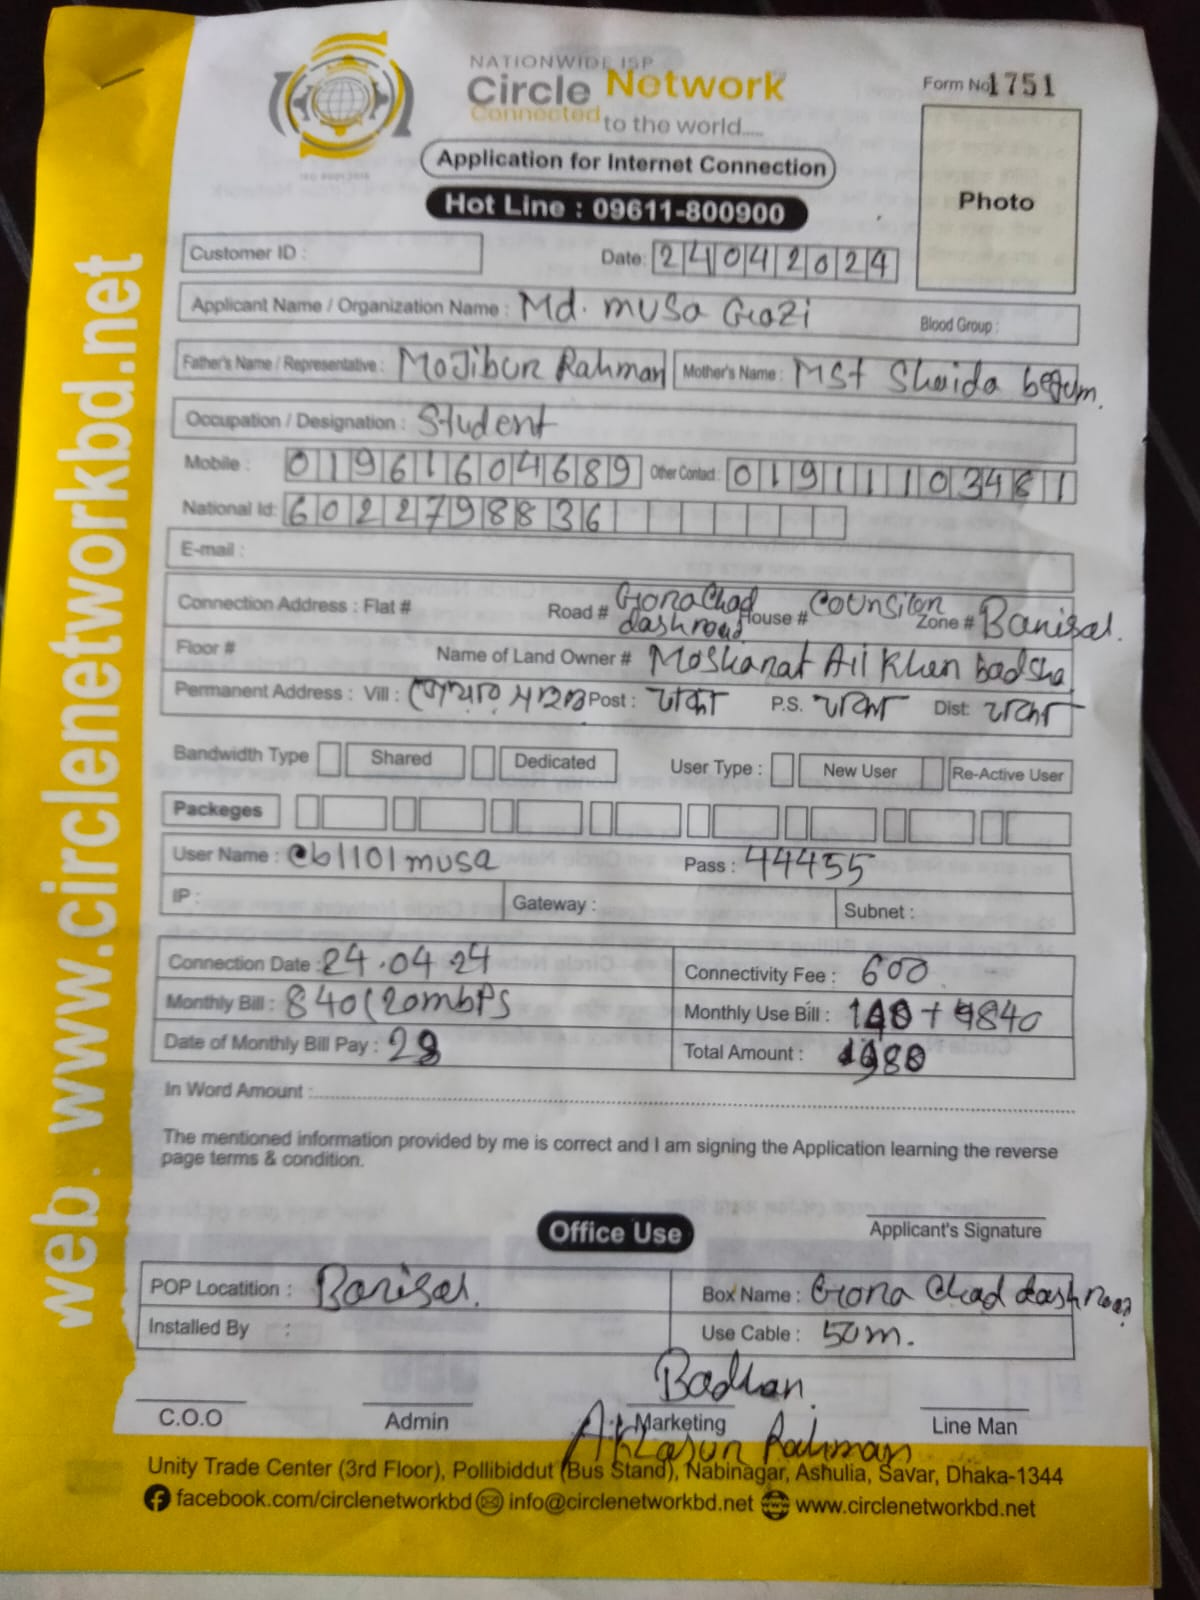 NATIONWIDE ISP
Circle Network
Connected to the world.....
Form No 1751
Application for Internet Connection
Hot Line : 09611-800900
Photo
Customer ID :
Date: 24042024
Applicant Name / Organization Name : Md. musa Gazi
Blood Group :
Father's Name / Representative : Mojibur Rahman Mother's Name : MSt Shaida begum.
Occupation / Designation : Student
Mobile : 01961604689 Other Contact : 01911103481
National Id: 6022798836
E-mail :
Connection Address : Flat # Road # Gora Chad dash road House # Zone # Barisal.
Floor # Name of Land Owner # Ali Khan badsha
Permanent Address : Vill : Post : P.S. Dist:
Bandwidth Type Shared Dedicated User Type : New User Re-Active User
Packeges
User Name : cb1101musa Pass : 44455
IP : Gateway : Subnet :
Connection Date : 24.04.24 Connectivity Fee : 600
Monthly Bill : 840(20mbPS Monthly Use Bill :
Date of Monthly Bill Pay : Total Amount :
In Word Amount :
The mentioned information provided by me is correct and I am signing the Application learning the reverse
page terms & condition.
Applicant's Signature
Office Use
POP Locatition : Barisal. Box Name : Gora Chad dash road
Installed By : Use Cable : 50m.
Badhan.
C.O.O Admin Marketing Line Man
Rahman
Unity Trade Center (3rd Floor), Pollibiddut (Bus Stand), Nabinagar, Ashulia, Savar, Dhaka-1344
facebook.com/circlenetworkbd info@circlenetworkbd.net www.circlenetworkbd.net
web . www.circlenetworkbd.net